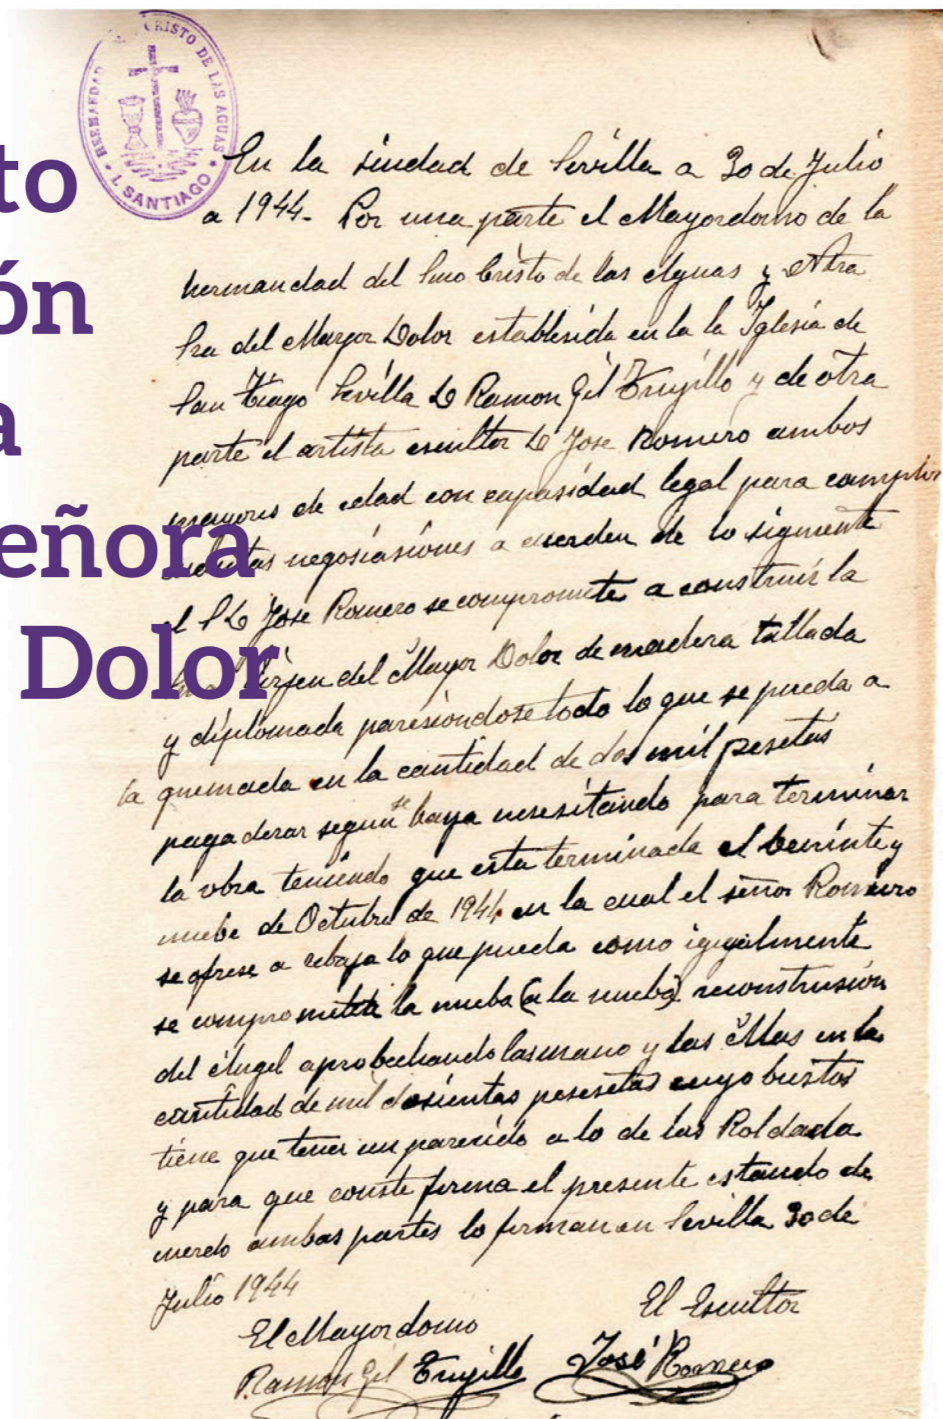 HERMANDAD CRISTO DE LAS AGUAS
I. SANTIAGO
to
ón
a
eñora
Dolor
En la siudad de Sevilla a 30 de Julio
a 1944. Por una parte el Mayordomo de la
hermandad del Smo Cristo de las Aguas y Ntra
Sra del Mayor Dolor establesida en la la Iglesia de
San Tiago Sevilla D Ramon Gil Trujillo y de otra
parte el artista escultor D Jose Romero ambos
mayores de edad con capasidad legal para complir
negosiasiones a cuerden de lo siguiente
el S D Jose Romero se compromete a construir la
Virjen del Mayor Dolor de madera tallada
y diplomada paresiondose todo lo que se pueda a
la quemada en la cantidad de dos mil pesetas
pagaderar segun se baya nesesitando para terminar
la obra teniendo que esta terminada el beninte y
nuebe de Octubre de 1944 en la cual el señor Romero
se ofrese a rebaja lo que pueda como igualmente
se compromete la nueba (a la nueba) reconstrusion
del Angel aprobechando las mano y las Alas en la
cantidad de mil dosientas pesesetas cuyo bustos
tiene que tener un paresido a lo de las Roldada
y para que conste firma el presente estando de
cuerdo ambas partes lo firman en Sevilla 30 de
Julio 1944
El Mayordomo
El Escultor
Ramon Gil Trujillo
José Romero